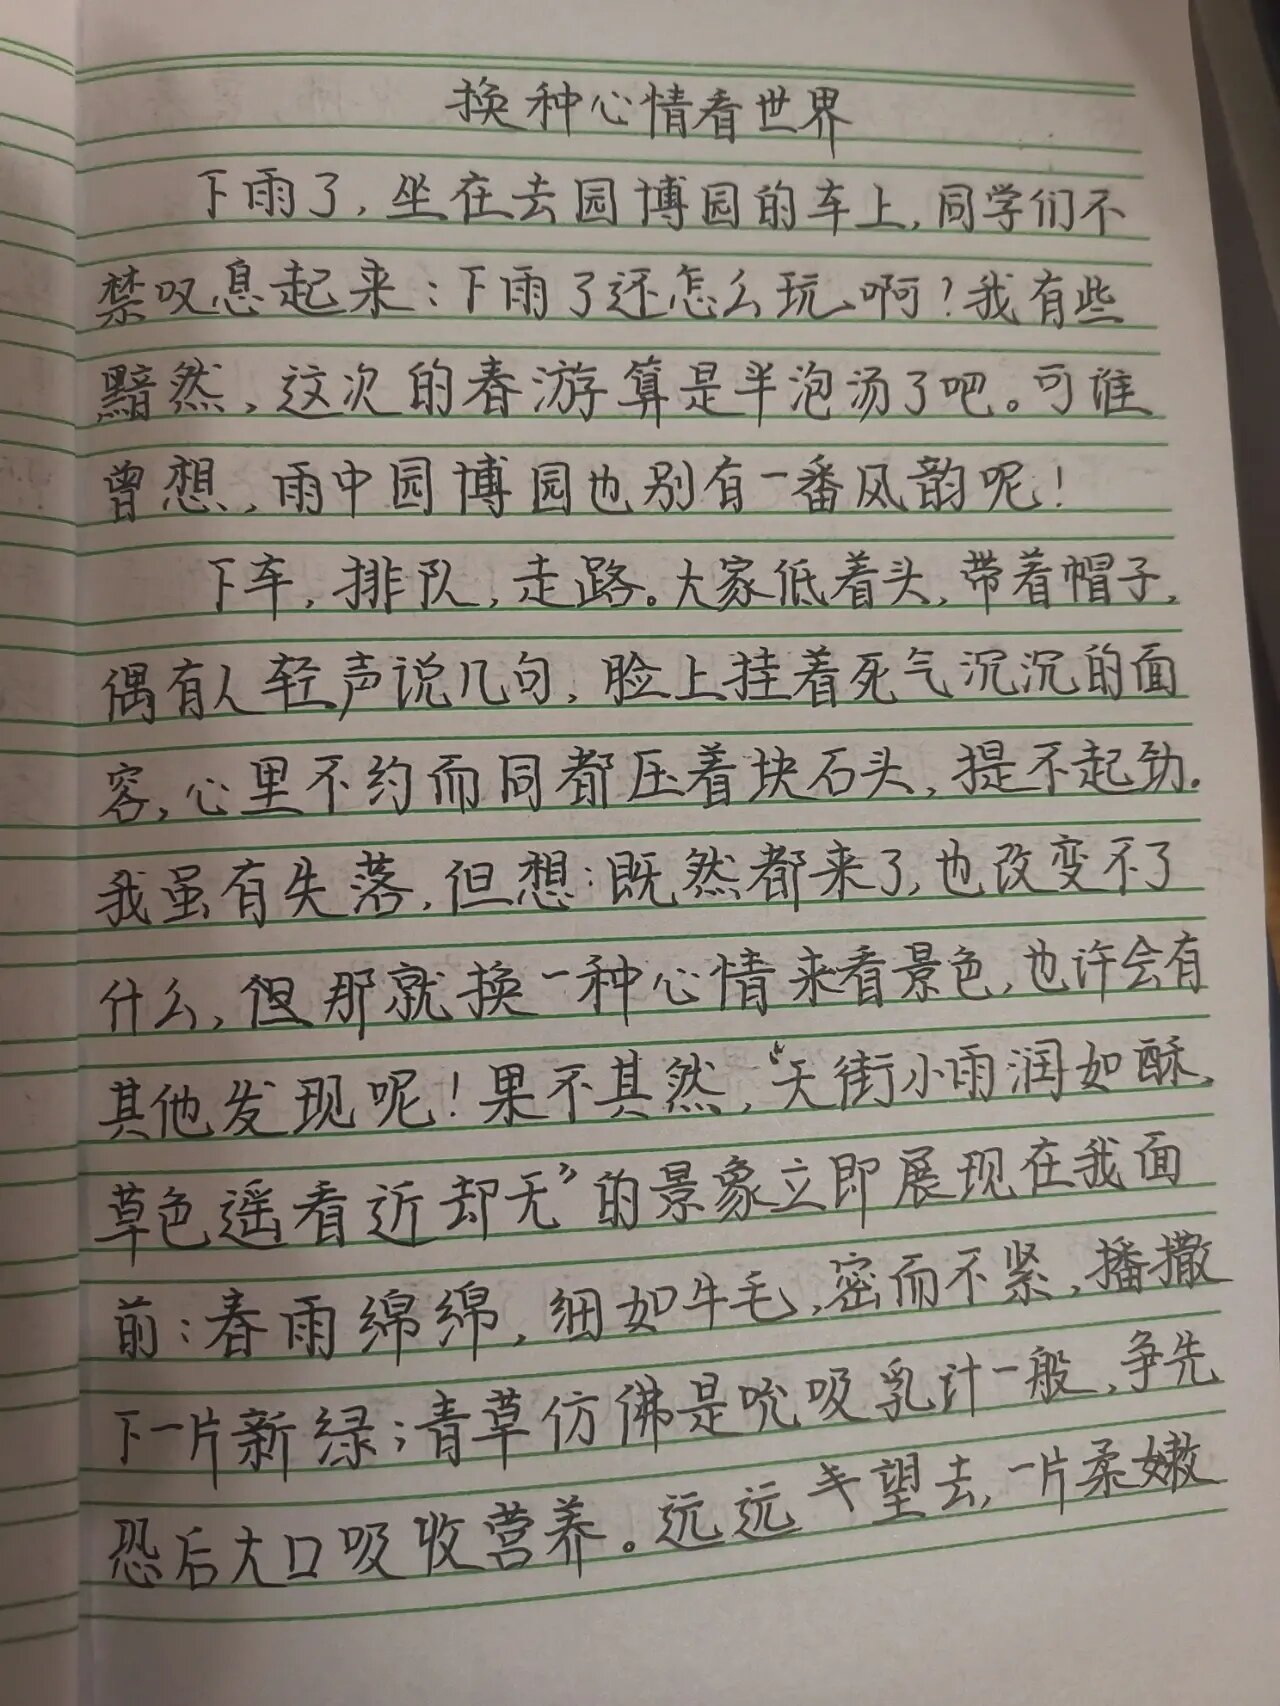 换种心情看世界
下雨了,坐在去园博园的车上,同学们不
禁叹息起来:下雨了还怎么玩啊?我有些
黯然,这次的春游算是半泡汤了吧。可谁
曾想,雨中园博园也别有一番风韵呢!
下车,排队,走路。大家低着头,带着帽子,
偶有人轻声说几句,脸上挂着死气沉沉的面
容,心里不约而同都压着块石头,提不起劲.
我虽有失落,但想:既然都来了,也改变不了
什么,但那就换一种心情来看景色,也许会有
其他发现呢!果不其然,“天街小雨润如酥,
草色遥看近却无”的景象立即展现在我面
前:春雨绵绵,细如牛毛,密而不紧,播撒
下一片新绿;青草仿佛是吮吸乳汁一般,争先
恐后大口吸收营养。远远望去,一片柔嫩